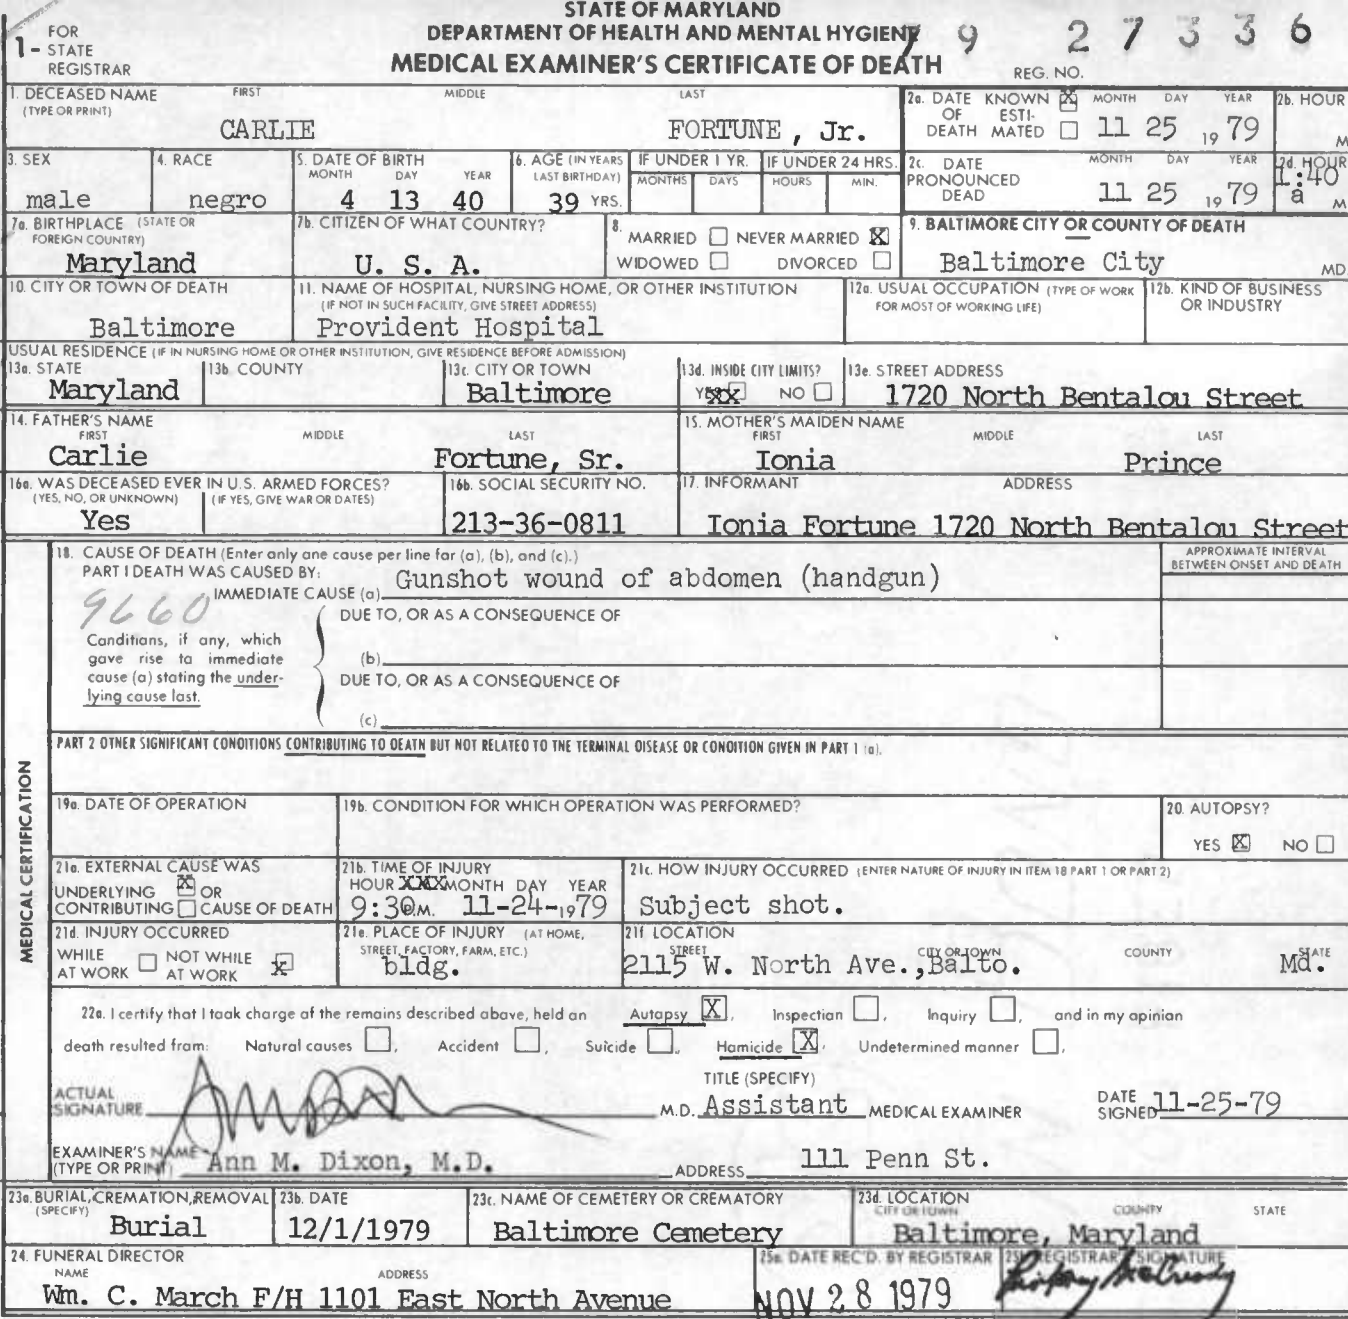 STATE OF MARYLAND
DEPARTMENT OF HEALTH AND MENTAL HYGIENE
MEDICAL EXAMINER'S CERTIFICATE OF DEATH
1- FOR STATE REGISTRAR
REG. NO. 79 27336
1. DECEASED NAME (TYPE OR PRINT) FIRST MIDDLE LAST
CARLIE FORTUNE, Jr.
2a. DATE OF DEATH KNOWN [X] ESTIMATED [ ] MONTH DAY YEAR
11 25 19 79
2b. HOUR M
3. SEX
male
4. RACE
negro
5. DATE OF BIRTH MONTH DAY YEAR
4 13 40
6. AGE (IN YEARS LAST BIRTHDAY)
39 YRS.
IF UNDER 1 YR. MONTHS DAYS
IF UNDER 24 HRS. HOURS MIN.
2c. DATE PRONOUNCED DEAD MONTH DAY YEAR
11 25 19 79
2d. HOUR
1:40 a M
7a. BIRTHPLACE (STATE OR FOREIGN COUNTRY)
Maryland
7b. CITIZEN OF WHAT COUNTRY?
U. S. A.
8. MARRIED [ ] NEVER MARRIED [X]
WIDOWED [ ] DIVORCED [ ]
9. BALTIMORE CITY OR COUNTY OF DEATH
Baltimore City MD.
10. CITY OR TOWN OF DEATH
Baltimore
11. NAME OF HOSPITAL, NURSING HOME, OR OTHER INSTITUTION
(IF NOT IN SUCH FACILITY, GIVE STREET ADDRESS)
Provident Hospital
12a. USUAL OCCUPATION (TYPE OF WORK FOR MOST OF WORKING LIFE)
12b. KIND OF BUSINESS OR INDUSTRY
USUAL RESIDENCE (IF IN NURSING HOME OR OTHER INSTITUTION, GIVE RESIDENCE BEFORE ADMISSION)
13a. STATE
Maryland
13b. COUNTY
13c. CITY OR TOWN
Baltimore
13d. INSIDE CITY LIMITS?
YES [XX] NO [ ]
13e. STREET ADDRESS
1720 North Bentalou Street
14. FATHER'S NAME FIRST MIDDLE LAST
Carlie Fortune, Sr.
15. MOTHER'S MAIDEN NAME FIRST MIDDLE LAST
Ionia Prince
16a. WAS DECEASED EVER IN U.S. ARMED FORCES?
(YES, NO, OR UNKNOWN) (IF YES, GIVE WAR OR DATES)
Yes
16b. SOCIAL SECURITY NO.
213-36-0811
17. INFORMANT ADDRESS
Ionia Fortune 1720 North Bentalou Street
MEDICAL CERTIFICATION
18. CAUSE OF DEATH (Enter only one cause per line for (a), (b), and (c).)
PART I DEATH WAS CAUSED BY:
IMMEDIATE CAUSE (a) Gunshot wound of abdomen (handgun)
APPROXIMATE INTERVAL BETWEEN ONSET AND DEATH
9660
DUE TO, OR AS A CONSEQUENCE OF
Conditions, if any, which gave rise to immediate cause (a) stating the underlying cause last.
(b)
DUE TO, OR AS A CONSEQUENCE OF
(c)
PART 2 OTHER SIGNIFICANT CONDITIONS CONTRIBUTING TO DEATH BUT NOT RELATED TO THE TERMINAL DISEASE OR CONDITION GIVEN IN PART 1 (a).
19a. DATE OF OPERATION
19b. CONDITION FOR WHICH OPERATION WAS PERFORMED?
20. AUTOPSY?
YES [X] NO [ ]
21a. EXTERNAL CAUSE WAS
UNDERLYING [X] OR
CONTRIBUTING [ ] CAUSE OF DEATH
21b. TIME OF INJURY
HOUR XXX MONTH DAY YEAR
9:30 P.M. 11-24-1979
21c. HOW INJURY OCCURRED (ENTER NATURE OF INJURY IN ITEM 18 PART 1 OR PART 2)
Subject shot.
21d. INJURY OCCURRED
WHILE AT WORK [ ] NOT WHILE AT WORK [X]
21e. PLACE OF INJURY (AT HOME, STREET, FACTORY, FARM, ETC.)
bldg.
21f. LOCATION STREET CITY OR TOWN COUNTY STATE
2115 W. North Ave., Balto. Md.
22a. I certify that I took charge of the remains described above, held an Autopsy [X], Inspection [ ], Inquiry [ ], and in my opinion
death resulted from: Natural causes [ ], Accident [ ], Suicide [ ], Homicide [X], Undetermined manner [ ],
ACTUAL SIGNATURE M.D.
TITLE (SPECIFY)
Assistant MEDICAL EXAMINER
DATE SIGNED 11-25-79
EXAMINER'S NAME (TYPE OR PRINT) Ann M. Dixon, M.D. ADDRESS 111 Penn St.
23a. BURIAL, CREMATION, REMOVAL (SPECIFY)
Burial
23b. DATE
12/1/1979
23c. NAME OF CEMETERY OR CREMATORY
Baltimore Cemetery
23d. LOCATION CITY OR TOWN COUNTY STATE
Baltimore, Maryland
24. FUNERAL DIRECTOR
NAME ADDRESS
Wm. C. March F/H 1101 East North Avenue
25a. DATE REC'D. BY REGISTRAR
NOV 28 1979
25b. REGISTRAR'S SIGNATURE